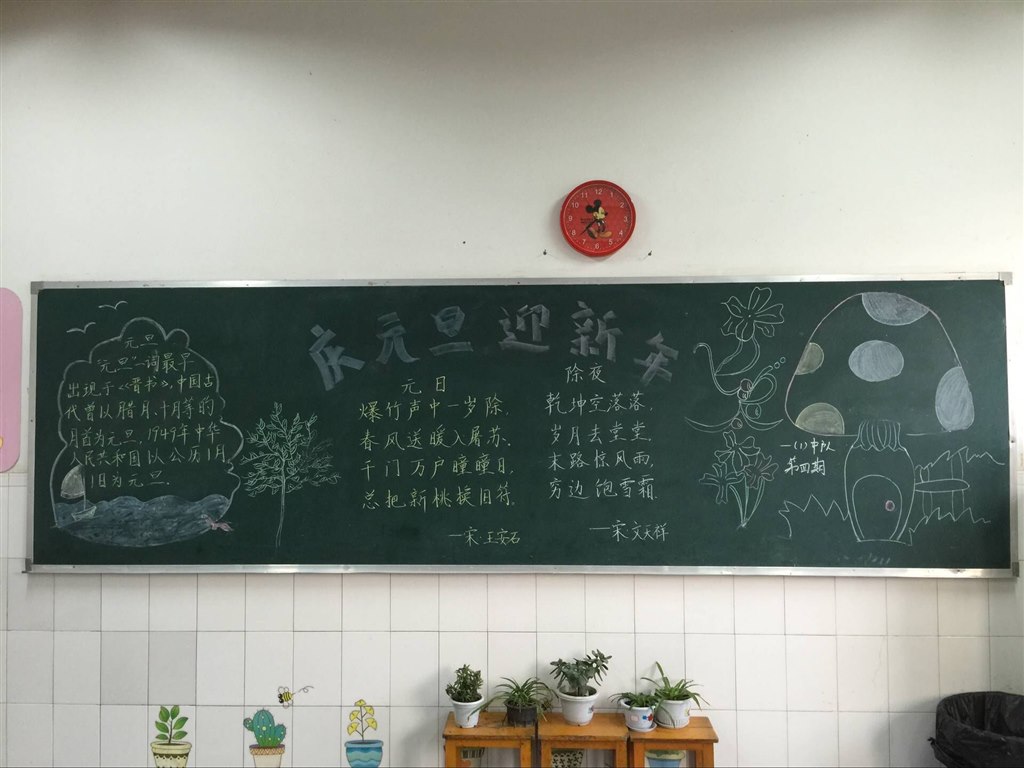 庆元旦迎新年
元旦
"元旦"一词最早
出现于《晋书》,中国古
代曾以腊月、十月等的
月首为元旦,1949年中华
人民共和国以公历1月
1日为元旦.
元日
爆竹声中一岁除,
春风送暖入屠苏.
千门万户曈曈日,
总把新桃换旧符.
—宋.王安石
除夜
乾坤空落落,
岁月去堂堂.
末路惊风雨,
穷边饱雪霜.
—宋.文天祥
一(1)中队
第四期
11 12 1
10 2
9 3
8 4
7 6 5